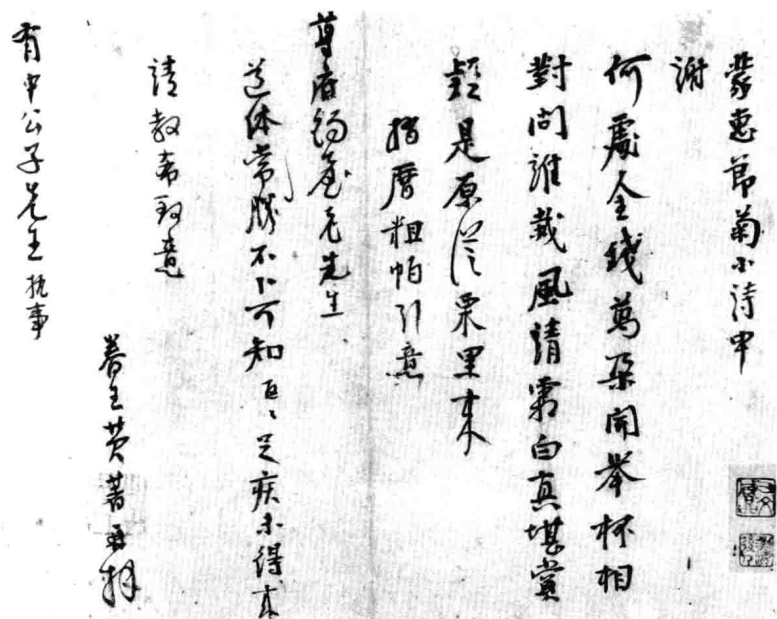 蒙惠節菊小詩申
謝
何處金錢萬朶開舉杯相
對問誰栽風清霜白真堪賞
疑是原從栗里來
摺曆粗帕引意
尊府鈞庵老先生
道休常勝不卜可知足疾未得來
請教希致意
眷王黃著再拜
肖申公子先生執事